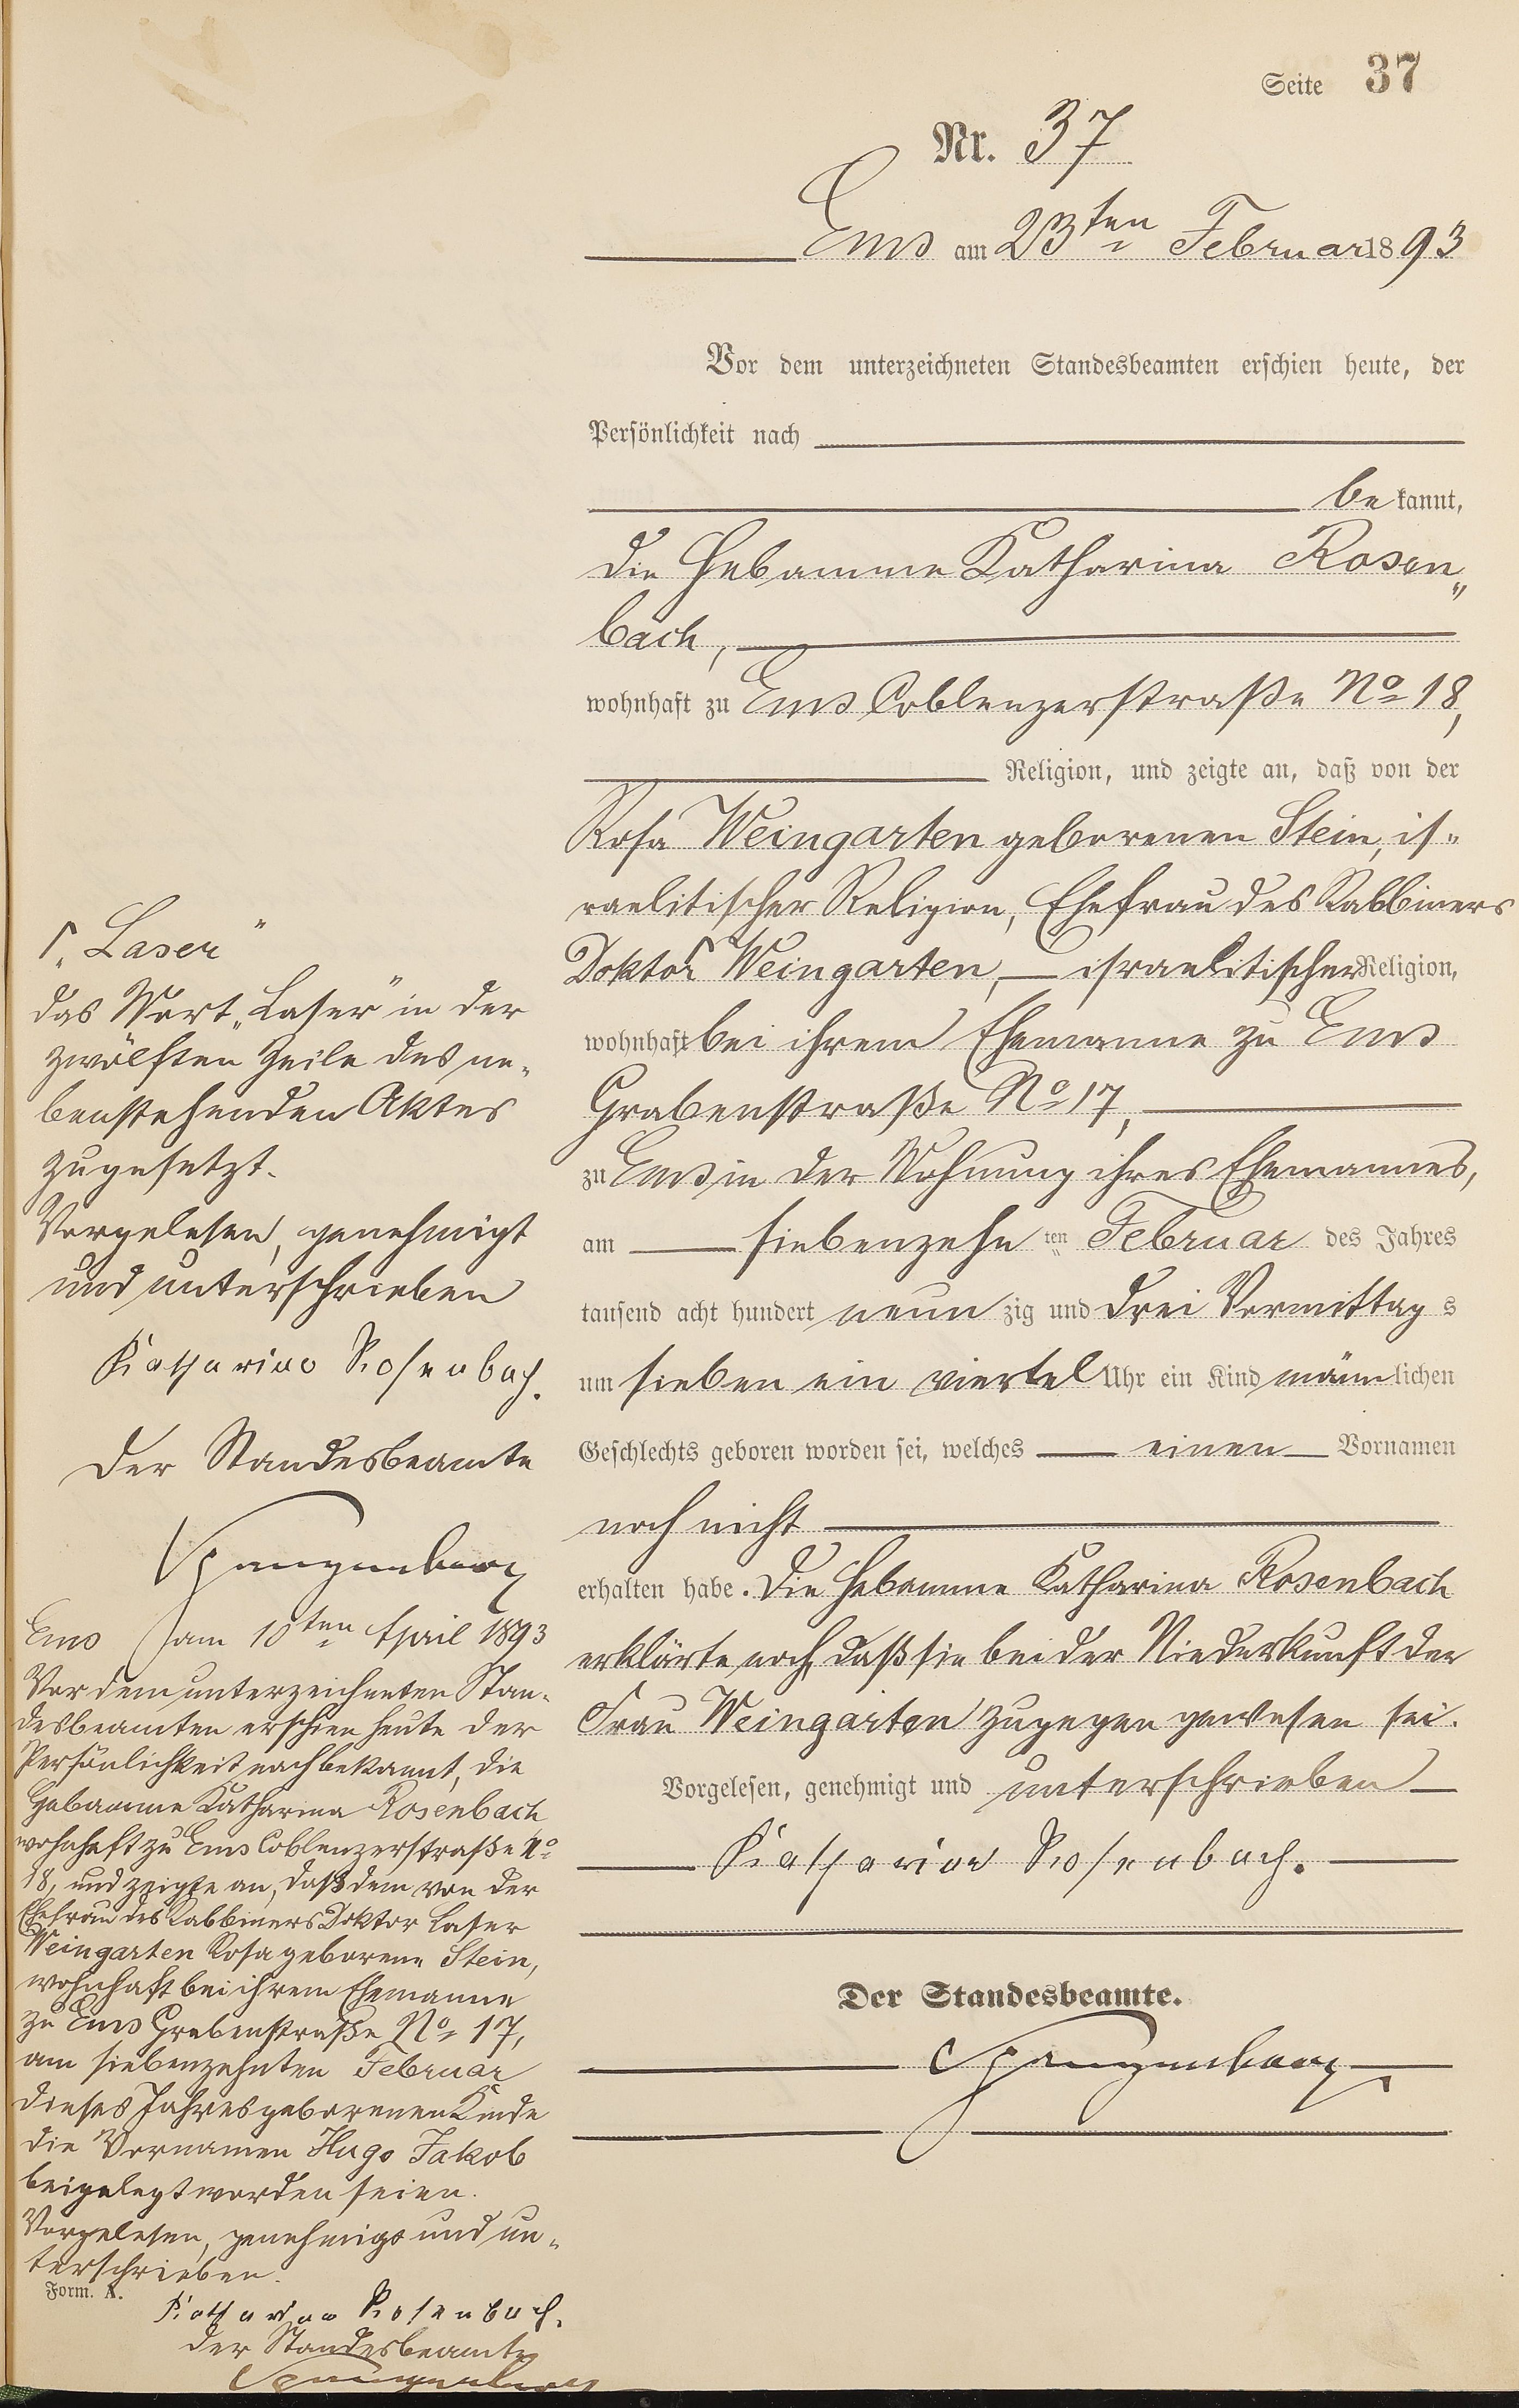 Seite 37
Nr. 37
Ems am 23ten Februar 1893
Vor dem unterzeichneten Standesbeamten erschien heute, der
Persönlichkeit nach
bekannt,
die Hebamme Katharina Rosen„
bach,
wohnhaft zu Ems Coblenzerstraße No 18,
Religion, und zeigte an, daß von der
Rosa Weingarten geborenen Stein, is„
raelitischer Religion, Ehefrau des Rabbiners
Doktor Weingarten, israelitischer Religion,
wohnhaft bei ihrem Ehemanne zu Ems
Grabenstraße No 17,
zu Ems in der Wohnung ihres Ehemannes,
am siebenzehnten Februar des Jahres
tausend acht hundert neunzig und drei Vormittags
um sieben ein viertel Uhr ein Kind männlichen
Geschlechts geboren worden sei, welches einen Vornamen
noch nicht
erhalten habe. Die Hebamme Katharina Rosenbach
erklärte noch, daß sie bei der Niederkunft der
Frau Weingarten zugegen gewesen sei.
Vorgelesen, genehmigt und unterschrieben
Katharina Rosenbach.
Der Standesbeamte.
Spangenberg
„Laser"
das Wort „Laser" in der
zwölften Zeile des ne„
benstehenden Aktes
zugesetzt.
Vorgelesen, genehmigt
und unterschrieben
Katharina Rosenbach.
Der Standesbeamte
Spangenberg
Ems am 10ten April 1893
Vor dem unterzeichneten Stan„
desbeamten erschien heute der
Persönlichkeit nach bekannt, die
Hebamme Katharina Rosenbach
wohnhaft zu Ems Coblenzerstraße No
18, und zeigte an, daß dem von der
Ehefrau des Rabbiners Doktor Laser
Weingarten Rosa geborene Stein,
wohnhaft bei ihrem Ehemanne
zu Ems Grabenstraße No 17,
am siebenzehnten Februar
dieses Jahres geborenen Kinde
die Vornamen Hugo Jakob
beigelegt worden seien.
Vorgelesen, genehmigt und un„
terschrieben.
Form. A.
Katharina Rosenbach.
Der Standesbeamte
Spangenberg